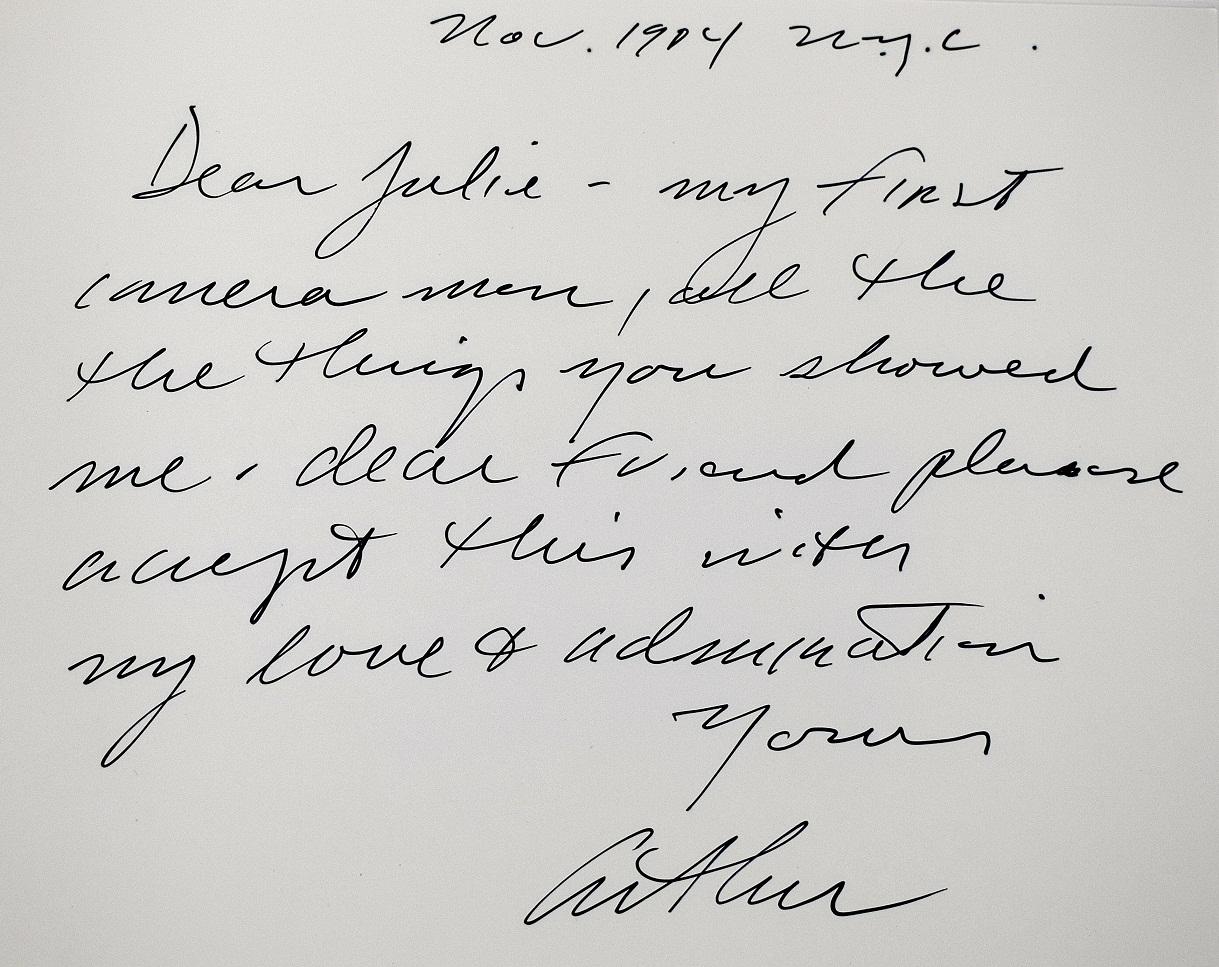 Nov. 1984 N.Y.C.
Dear Julie - my first
camera man, all the
the things you showed
me. dear friend please
accept this with
my love & admiration
Yours
Arthur